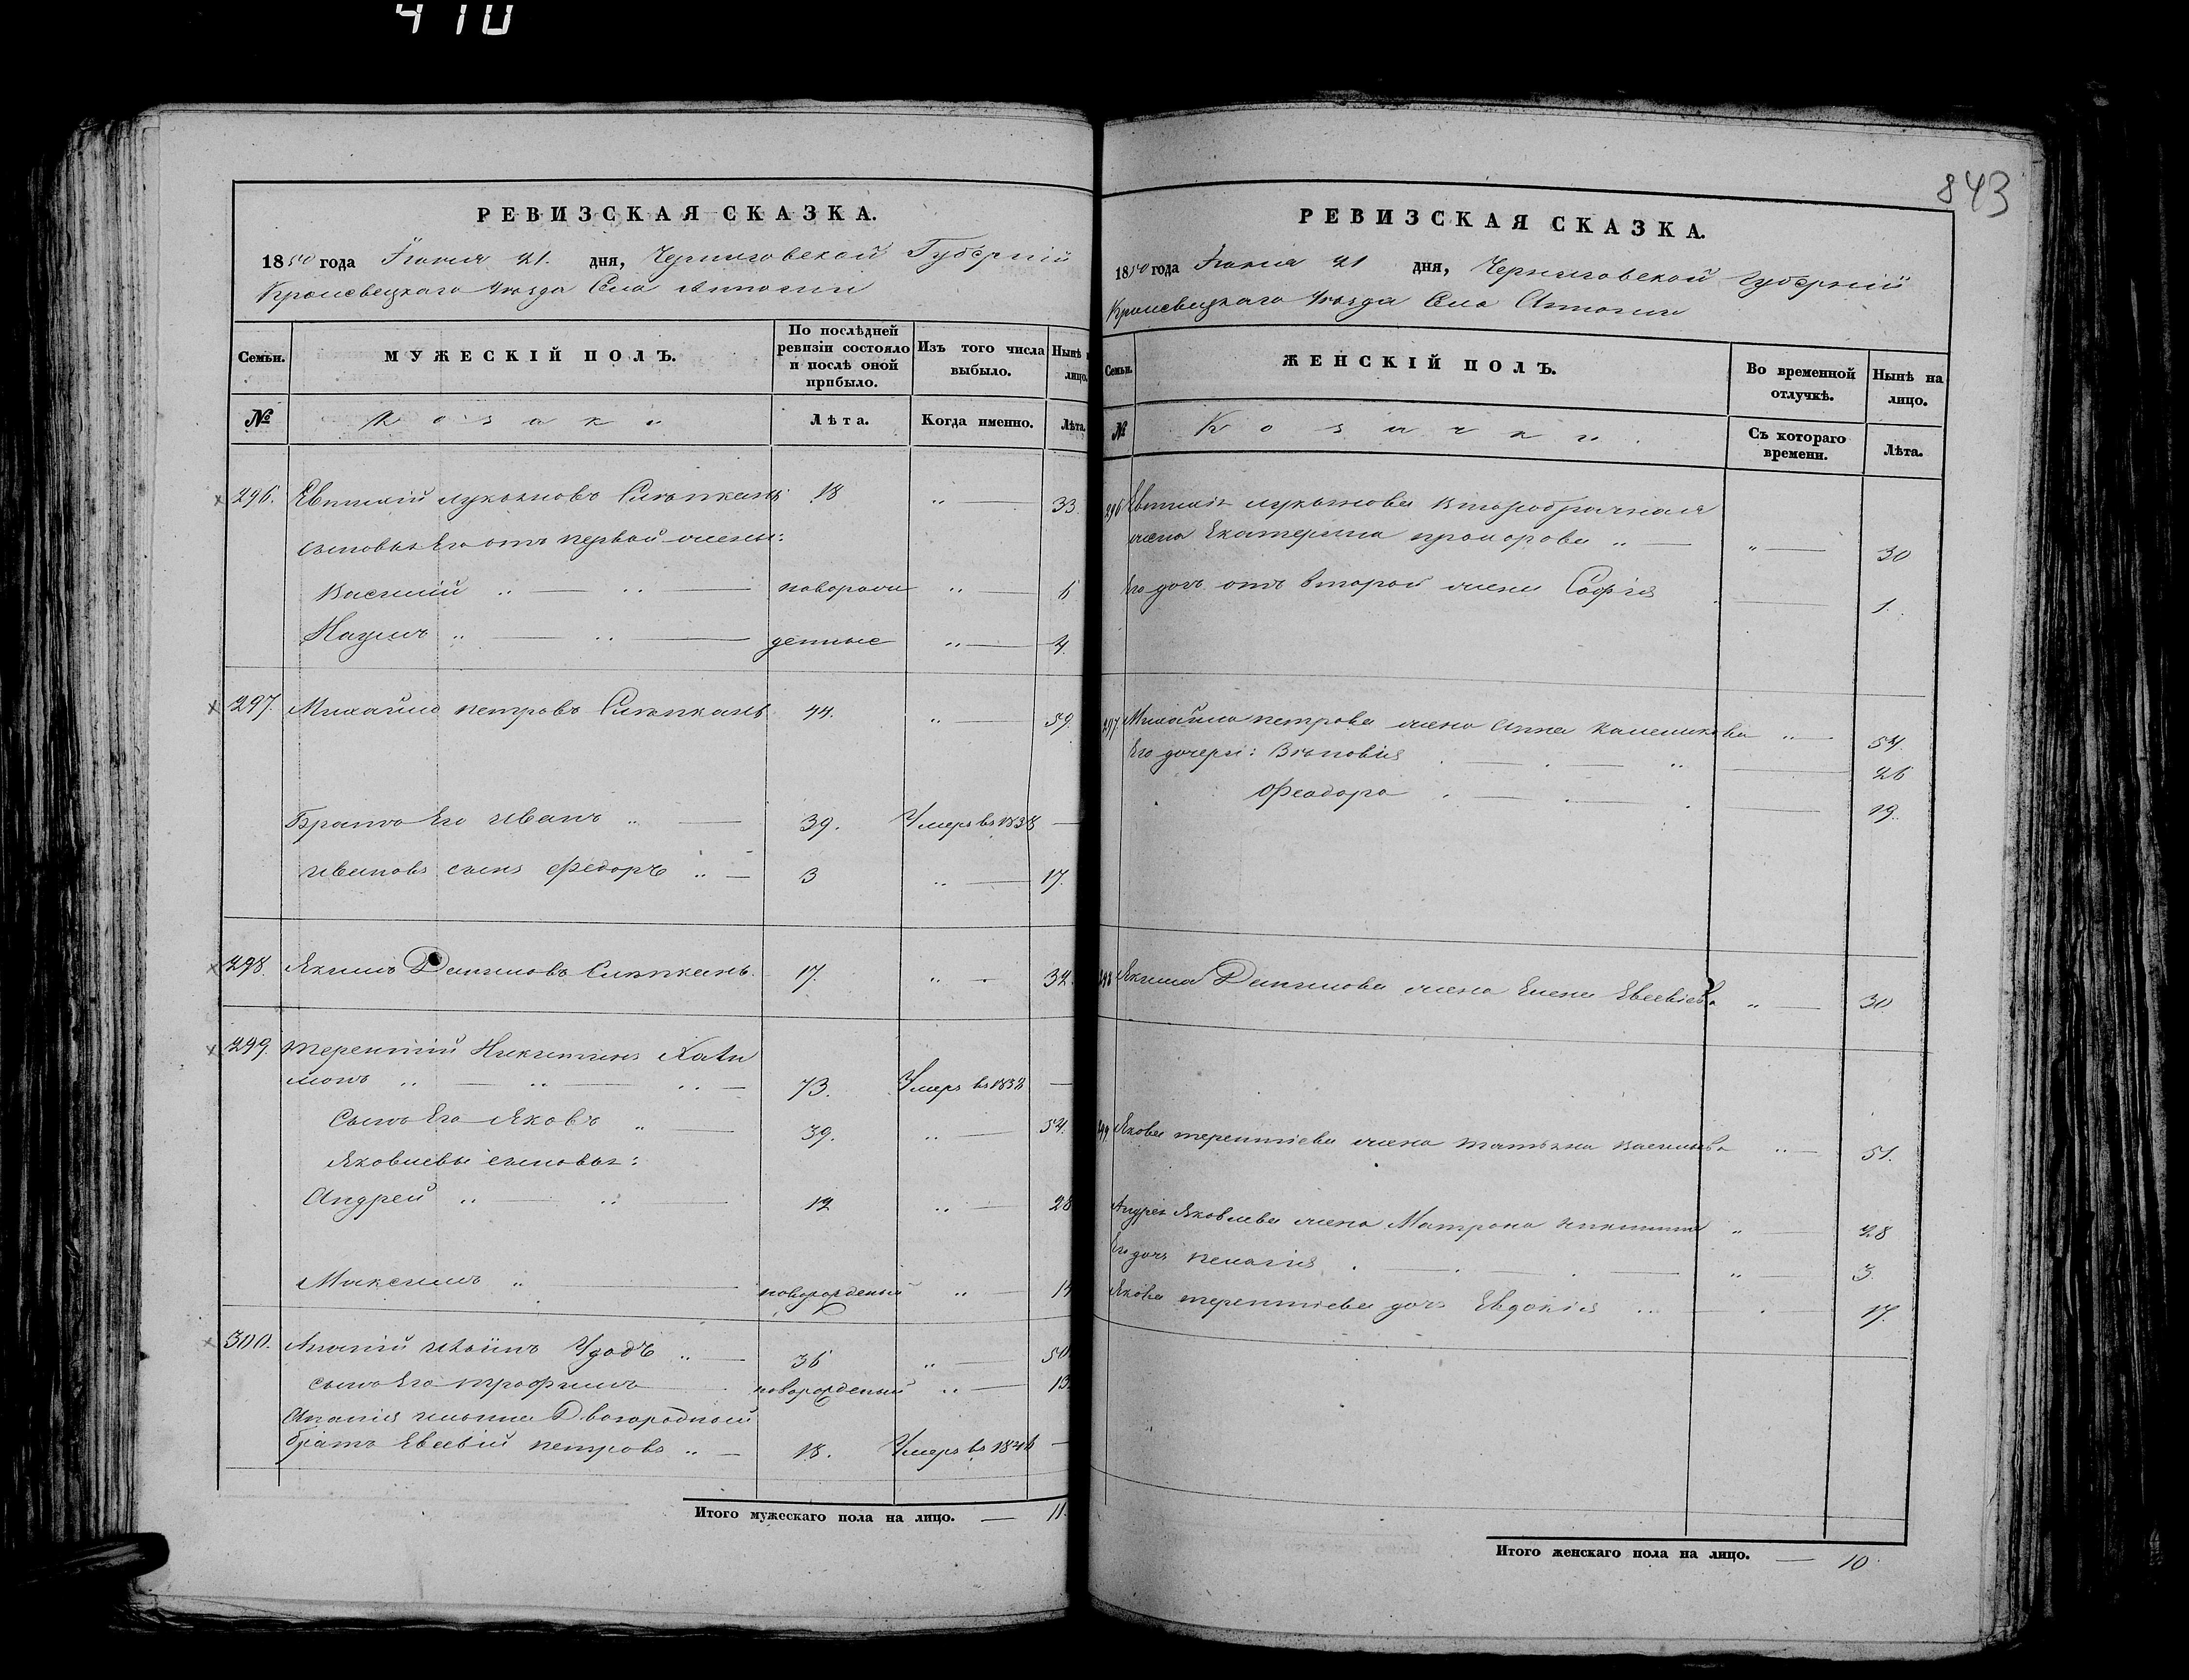 410
РЕВИЗСКАЯ СКАЗКА.
1850 года Іюня 21. дня, Черниговской Губерніи
Кролевецкаго Уѣзда Села
Семьи.
МУЖЕСКІЙ ПОЛЪ.
По послѣдней ревизіи состояло и послѣ оной прибыло.
Изъ того числа выбыло.
Нынѣ на лицо.
№
Козаки
Лѣта.
Когда именно.
Лѣта.
296. Евтихій Лукьяновъ 18 " — 33
сыновья Его отъ первой жены:
Василій " — " — новорож " — 6
Наумъ " — " — денные " — 4.
297. Михайло Петровъ 44. " — 59.
Братъ Его Иванъ " — 39. Умеръ въ 1838 —
Ивановъ сынъ Федоръ " — 3 " — 17.
298. Якимъ Даниловъ 17. " — 32.
299. Терентій Никитинъ
монъ " — " — " — 73. Умеръ въ 1832 —
Сынъ Его Яковъ " — 39. " — 54.
Яковлевы сыновья:
Андрей " — " — 12 " — 28
Максимъ " — новорожденый " — 14
300. Ананій Ильинъ Удодъ " — 36 " — 50
сынъ Его Трофимъ — новорожденый " — 13.
Ананія Ильина Двоюродной
братъ Евсевій Петровъ " — 18. Умеръ въ 1846 —
Итого мужескаго пола на лицо. — 11.
843
РЕВИЗСКАЯ СКАЗКА.
1850 года Іюня 21 дня, Черниговской Губерніи
Кролевецкаго Уѣзда Села
Семьи.
ЖЕНСКІЙ ПОЛЪ.
Во временной отлучкѣ.
Нынѣ на лицо.
№
Козачки.
Съ котораго времени.
Лѣта.
296 Евтихія Лукьянова второбрачная
жена Екатерина Прохорова " — " — 30
Его дочь отъ второй жены Софія — 1.
297. Михайла Петрова жена Анна " — 54.
Его дочери: — " — 26
Феодора — — 19.
298 Якима Данилова жена Елена " — 30
299 Якова Терентіева жена Татьяна " — 51.
Андрея Яковлева жена Матрона " — 28
Его дочь Пелагія — " — 3.
Якова Терентіева дочь Евдокія — 17.
Итого женскаго пола на лицо. — 10.